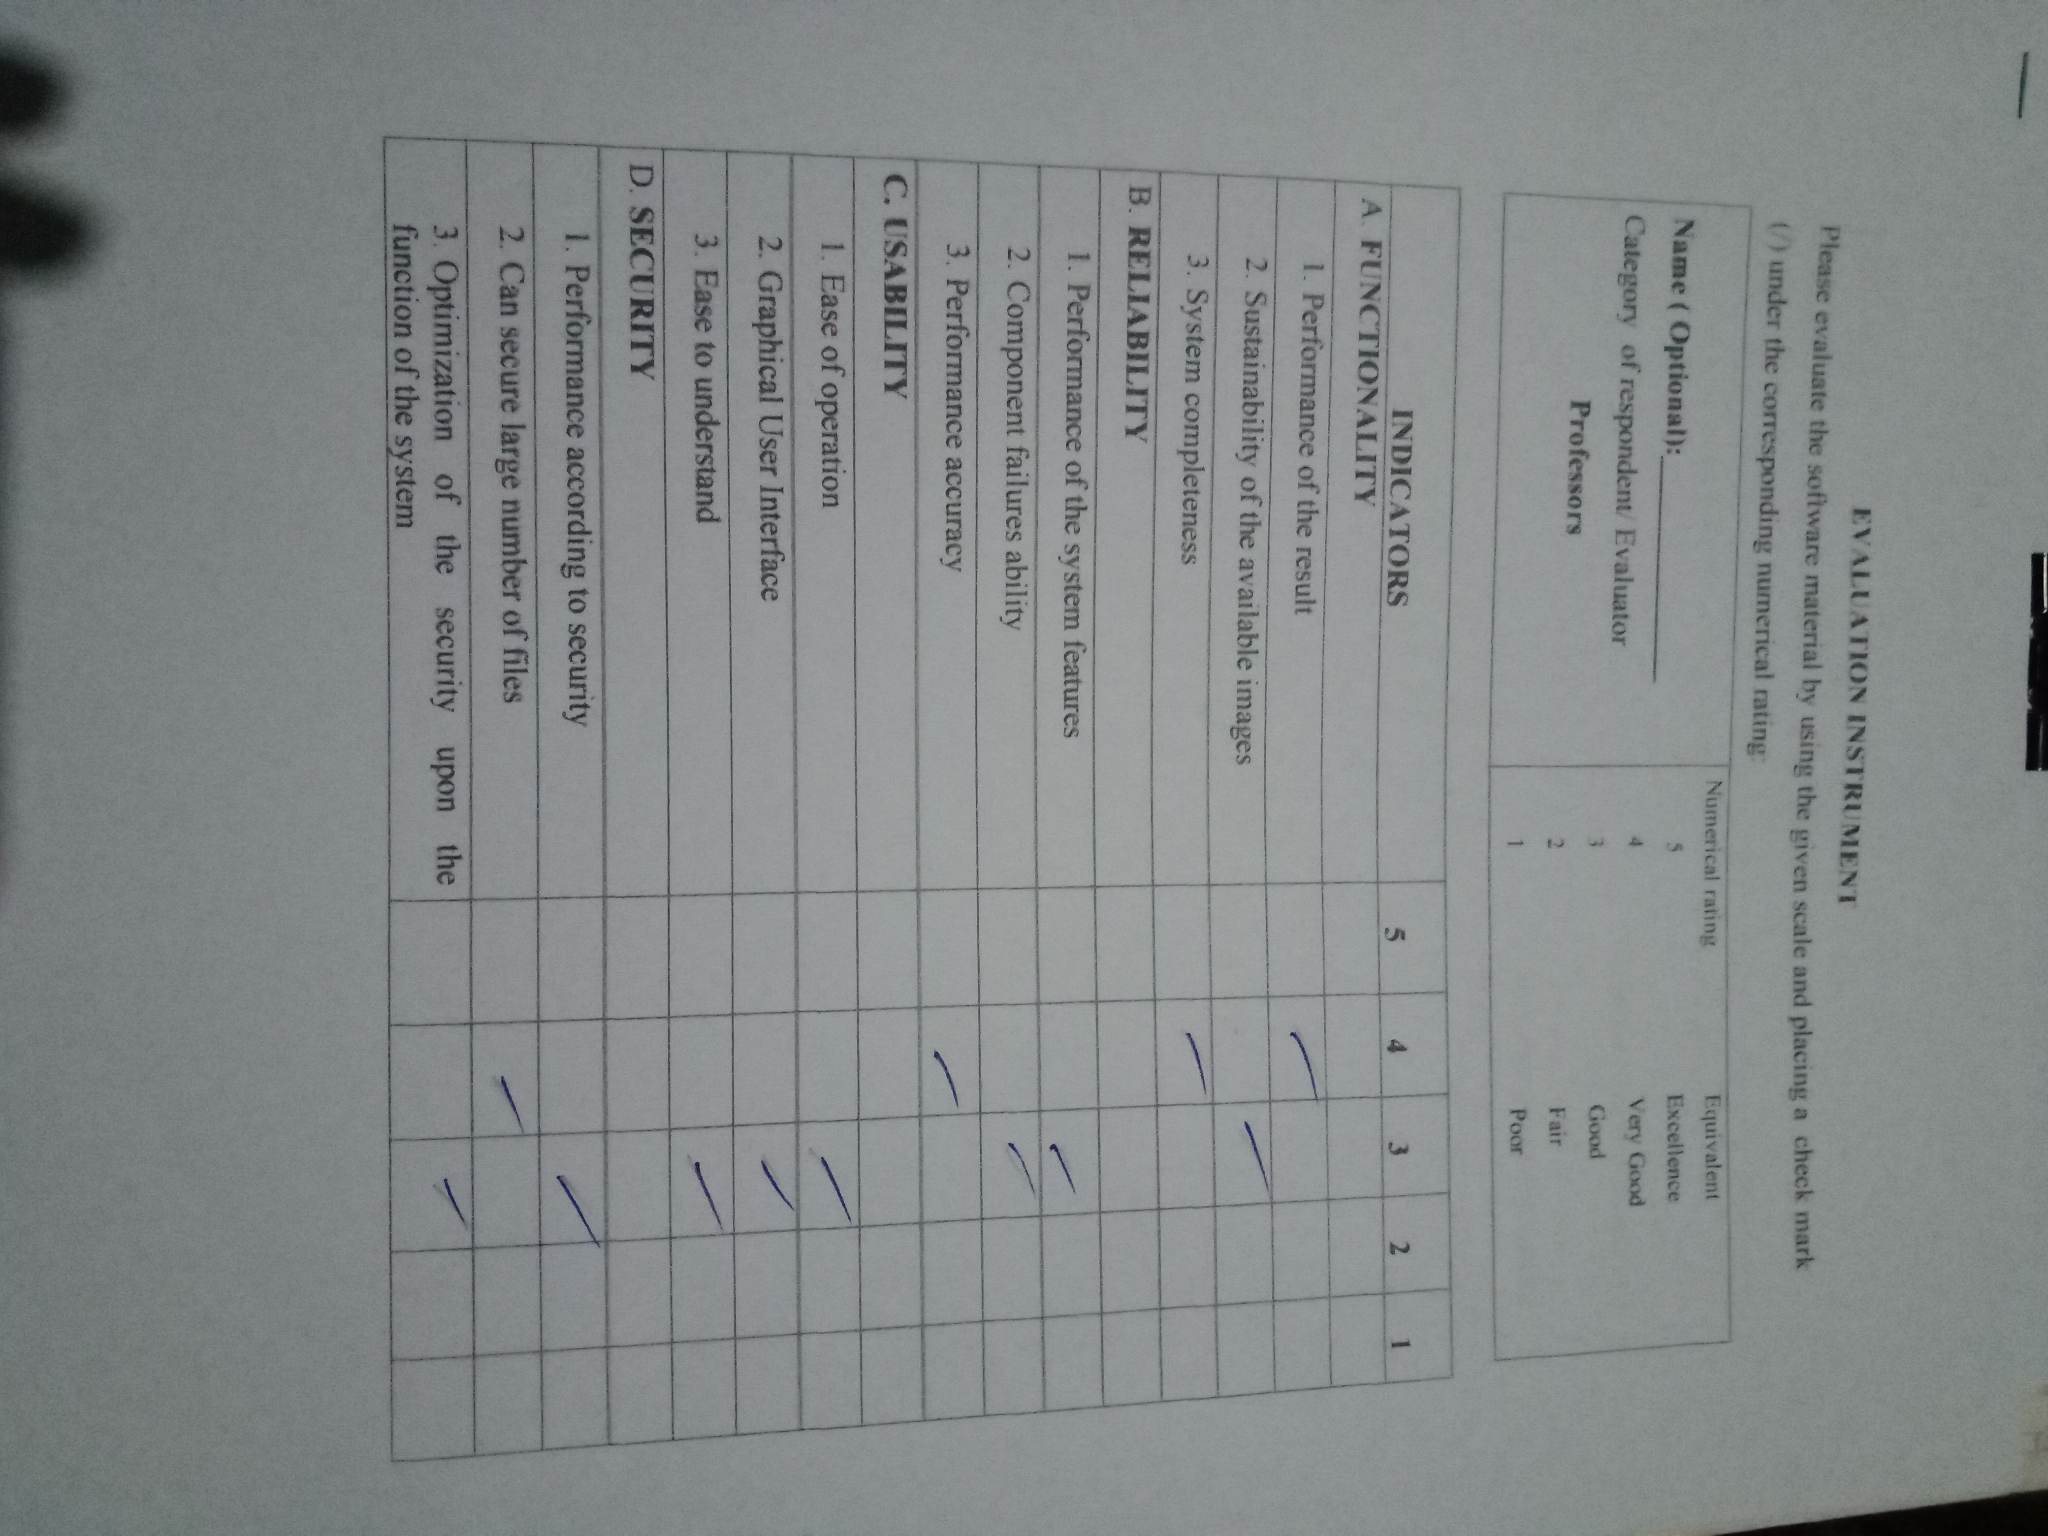 EVALUATION INSTRUMENT
Please evaluate the software material by using the given scale and placing a check mark
(/) under the corresponding numerical rating:
Name ( Optional):
Category of respondent/ Evaluator
Professors
Numerical rating Equivalent
5 Excellence
4 Very Good
3 Good
2 Fair
1 Poor
INDICATORS 5 4 3 2 1
A. FUNCTIONALITY
1. Performance of the result
2. Sustainability of the available images
3. System completeness
B. RELIABILITY
1. Performance of the system features
2. Component failures ability
3. Performance accuracy
C. USABILITY
1. Ease of operation
2. Graphical User Interface
3. Ease to understand
D. SECURITY
1. Performance according to security
2. Can secure large number of files
3. Optimization of the security upon the
function of the system